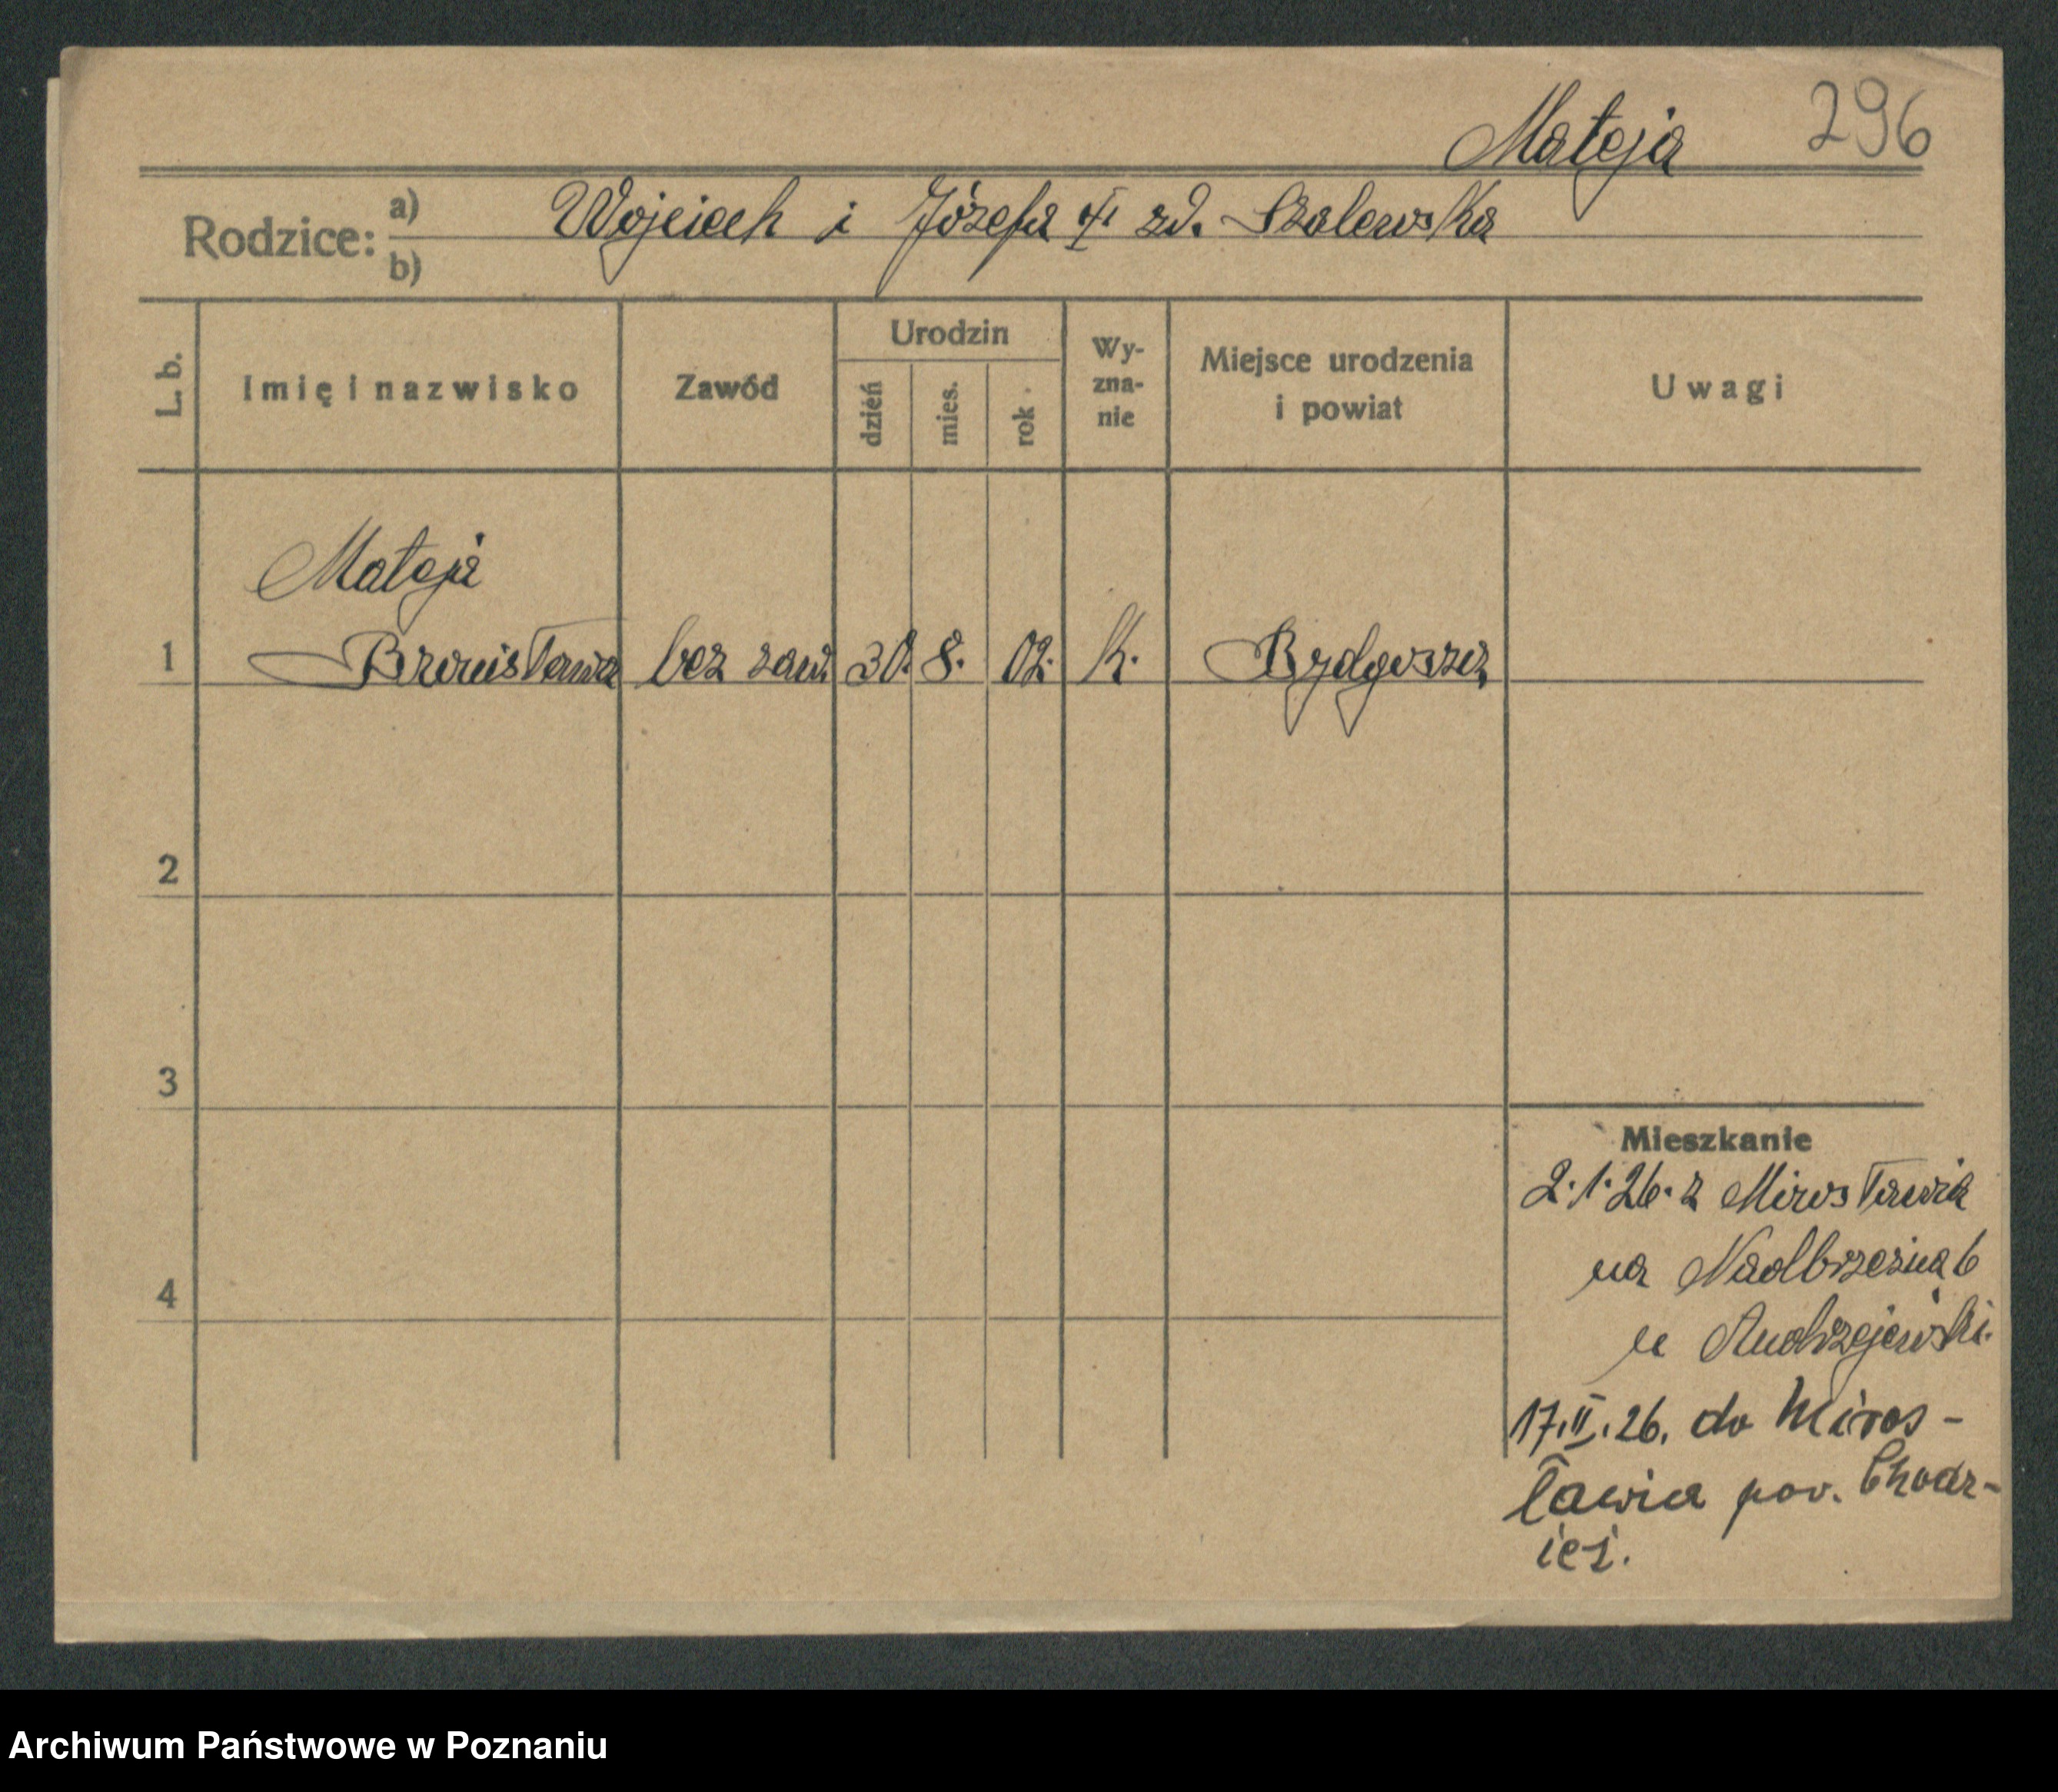 Mateja 296
Rodzice: a) b) Wojciech i Józefa zd. Szalewska
L. b. Imię i nazwisko Zawód Urodzin dzień mies. rok Wy-zna-nie Miejsce urodzenia i powiat Uwagi
Mateja
1 Bronisława bez zaw. 30. 8. 02. K. Bydgoszcz
2
3
4
Mieszkanie
2.1.26. z Mirosławia
na Nadbrzeżna 6
u Andrzejewski.
17.II.26. do Miros-
ławia pow. Chodz-
ież.
Archiwum Państwowe w Poznaniu